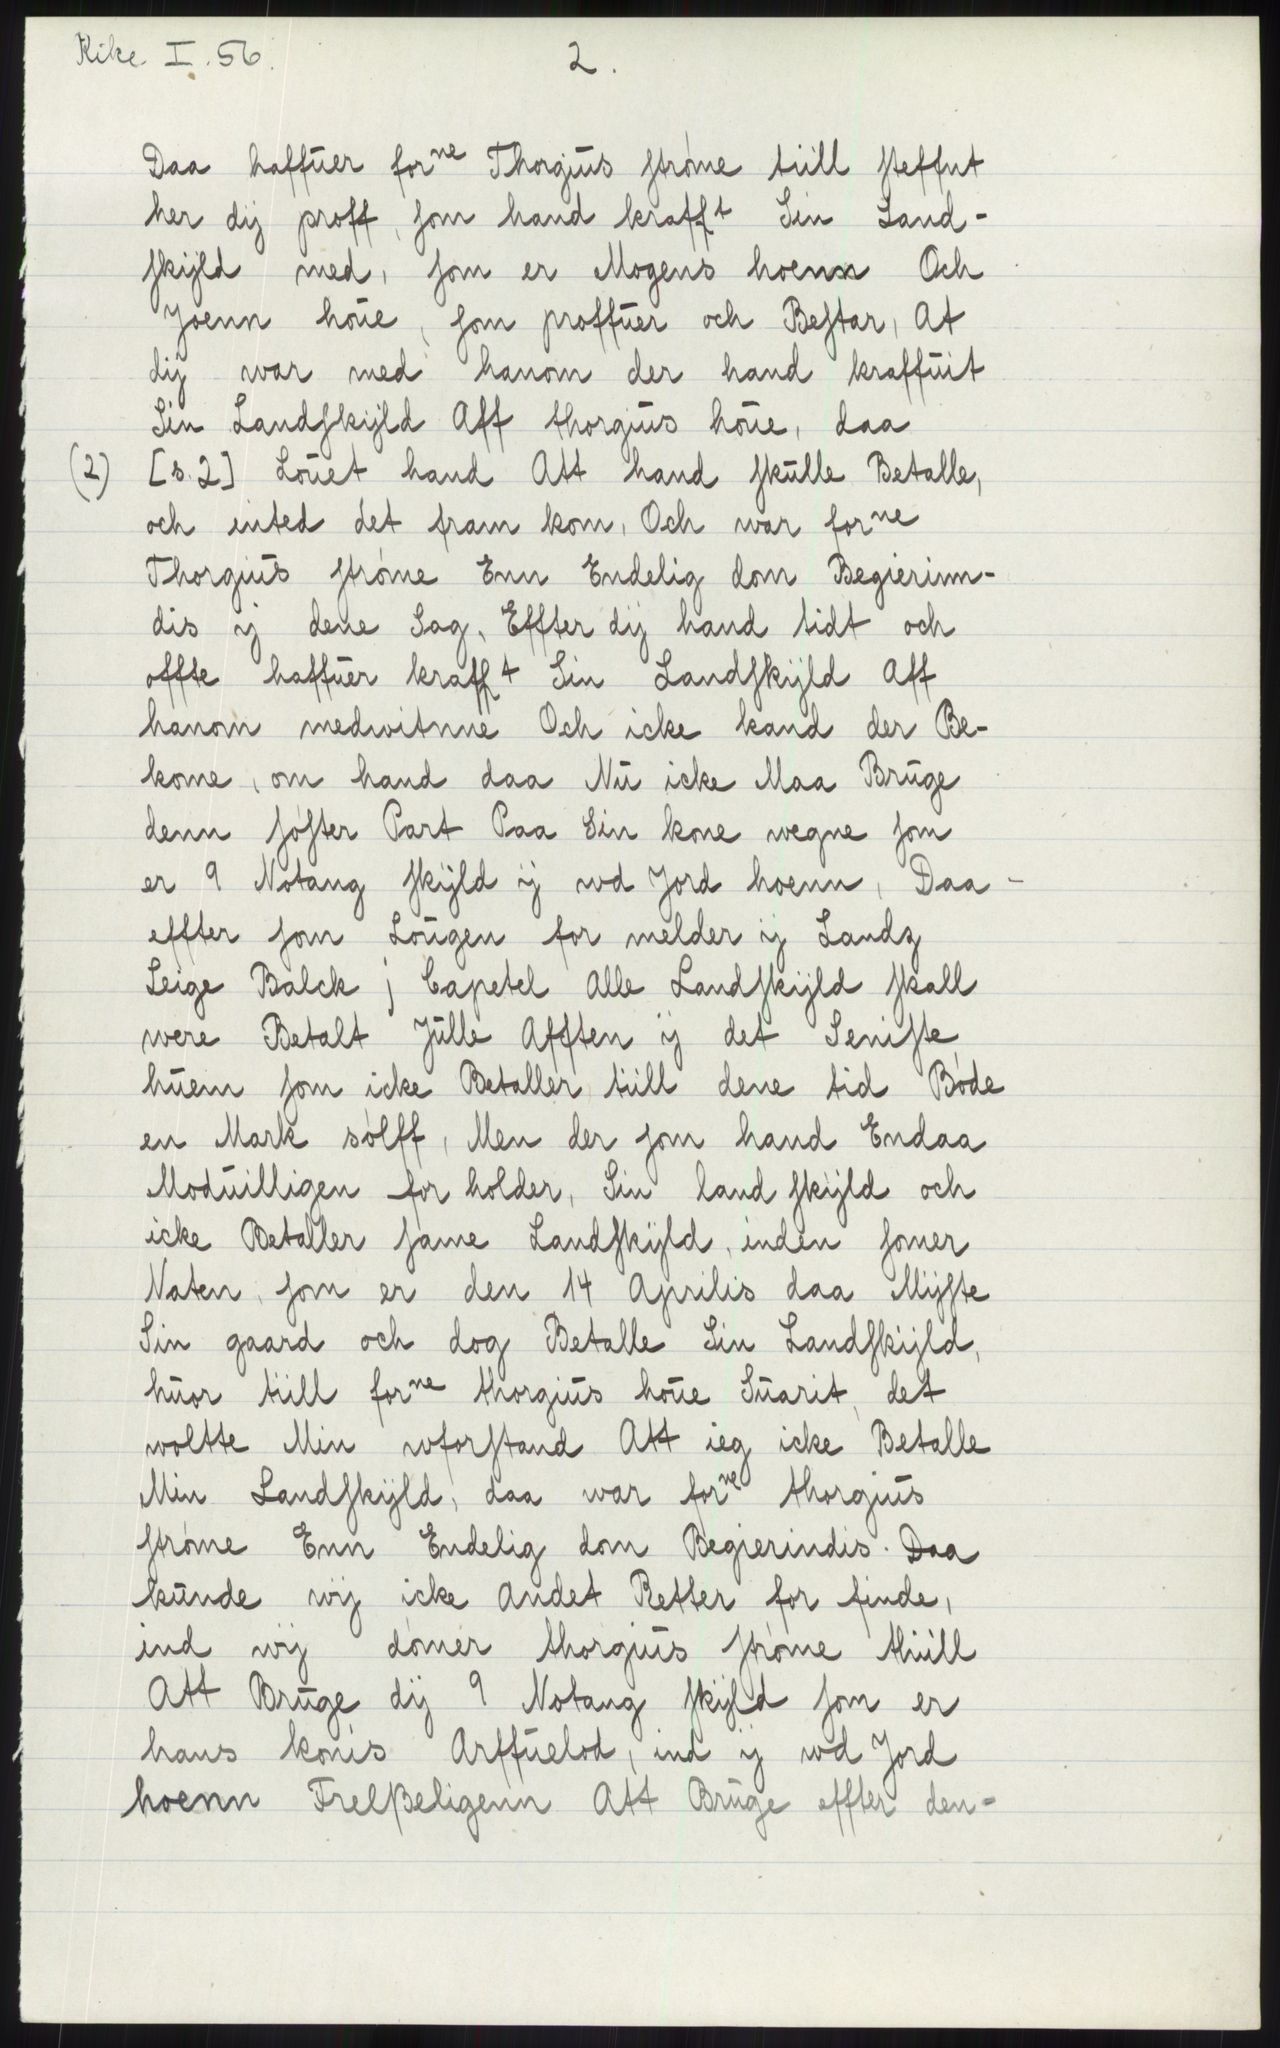 Rike. I. 56.
2.
Daa haffuer forne Thorgius strøme tiill steffnt
her dij proff, som hand krafft Sin Land-
skijld med, som er Mogens hoenn Och
Joenn hoúe, som proffúer och Bestar, At
dij war med hanom der hand kraffúit
Sin Landskijld Aff thorgiús hoúe, daa
(2) [s. 2] Loúet hand Att hand skúlle Betalle,
och inted det fram kom, Och war forne
Thorgiús strøme Enn Endelig dom Begierinn-
dis ij dene Sag, Effter dij hand tidt och
offte haffúer krafft Sin Landskijld Aff
hanom medwitnne Och icke kand der Be-
kome, om hand daa Nú icke Maa Brúge
denn søster Part Paa Sin kone wegne som
er 9 Notang skijld ij wd Jord hoenn, Daa -
effter som Loúgen for melder ij Landz
Leige Balck j Capetel Alle Landskijld skall
were Betalt Júlle Afften ij det Seniste,
húem som icke Betaller tiill dene tid Bøde
en Mark sølff, Men der som hand Endaa
Modúilligen for holder, Sin land skijld och
icke Betaller same Landskijld, inden somer
Naten, som er den 14 Aprilis daa Mijste
Sin gaard och dog Betalle Sin Landskijld,
húor tiill forne thorgiús hoúe Súarit, det
woltte Min wforstand Att ieg icke Betalle
Min Landskijld, daa war forne thorgiús
strøme Enn Endelig dom Begierindis. Daa
kúnde wij icke Andet Retter for finde,
ind wij dømer thorgiús strøme thiill
Att Brúge dij 9 Notang skijld som er
hans konis Arffúelod, ind ij wd Jord
hoenn Frelßeligenn Att Brúge effter den-